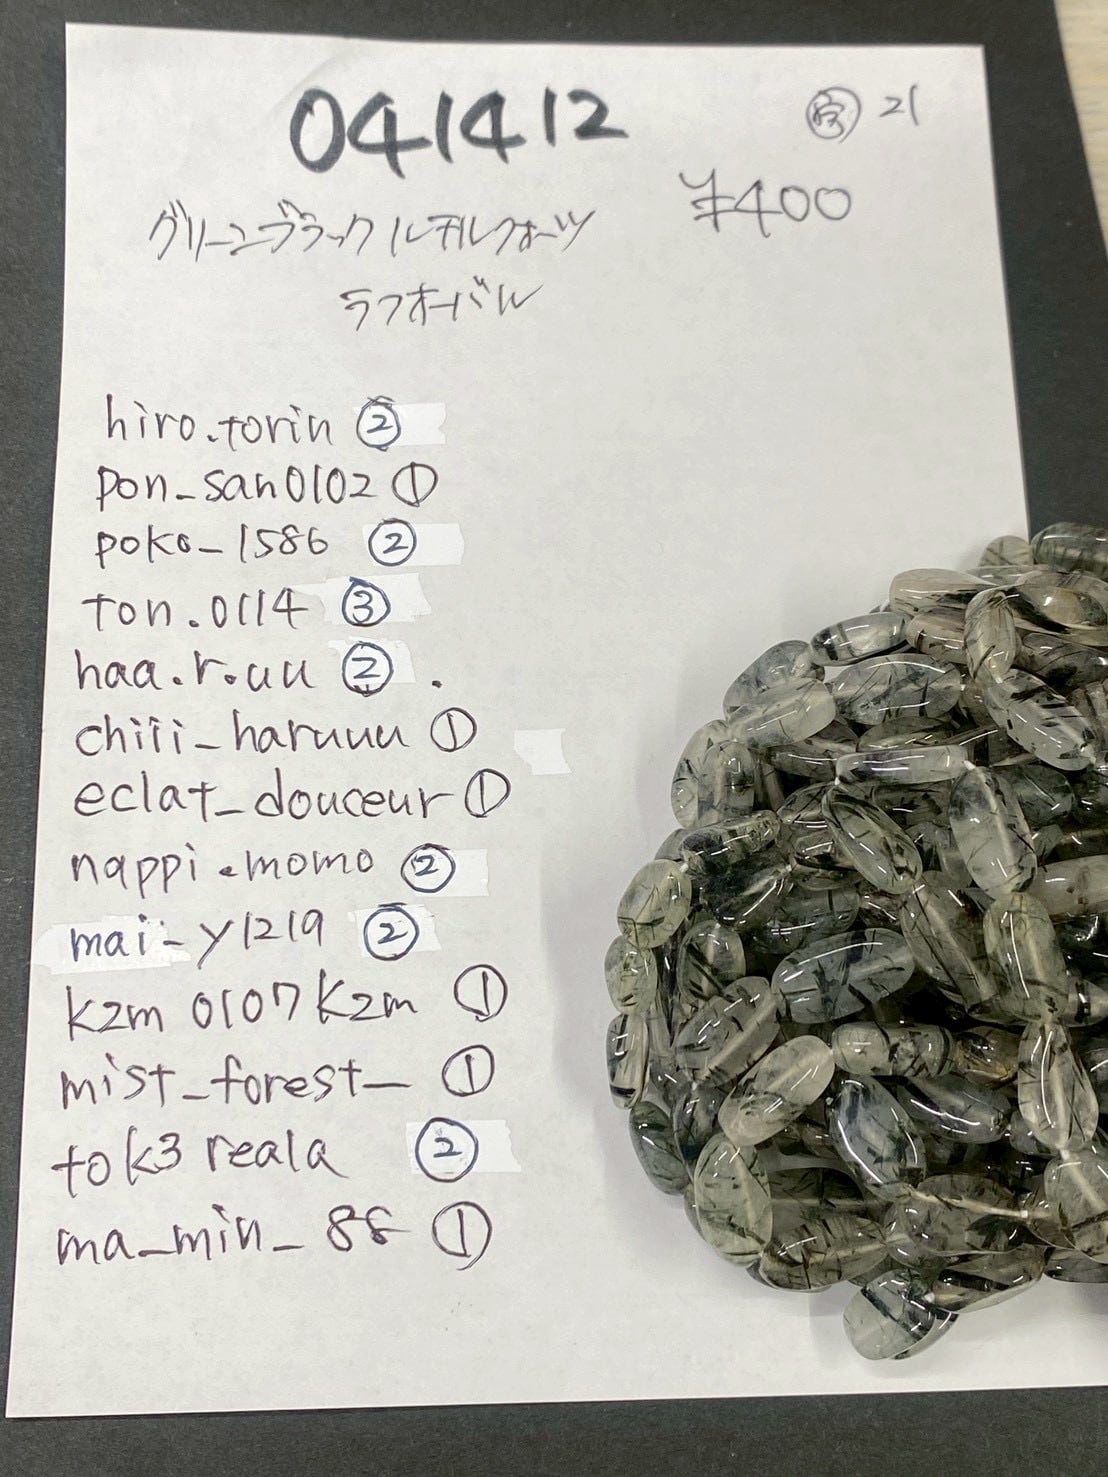 041412
21
¥400
グリーンブラックルチルクォーツ
ラフオーバル
hiro.torin ②
pon_san0102 ①
poko_1586 ②
ton.0114 ③
haa.r.uu ②
chiii_haruuu ①
eclat_douceur ①
nappi.momo ②
mai_y1219 ②
kzm0107kzm ①
mist_forest_ ①
tok3reala ②
ma_min_88 ①